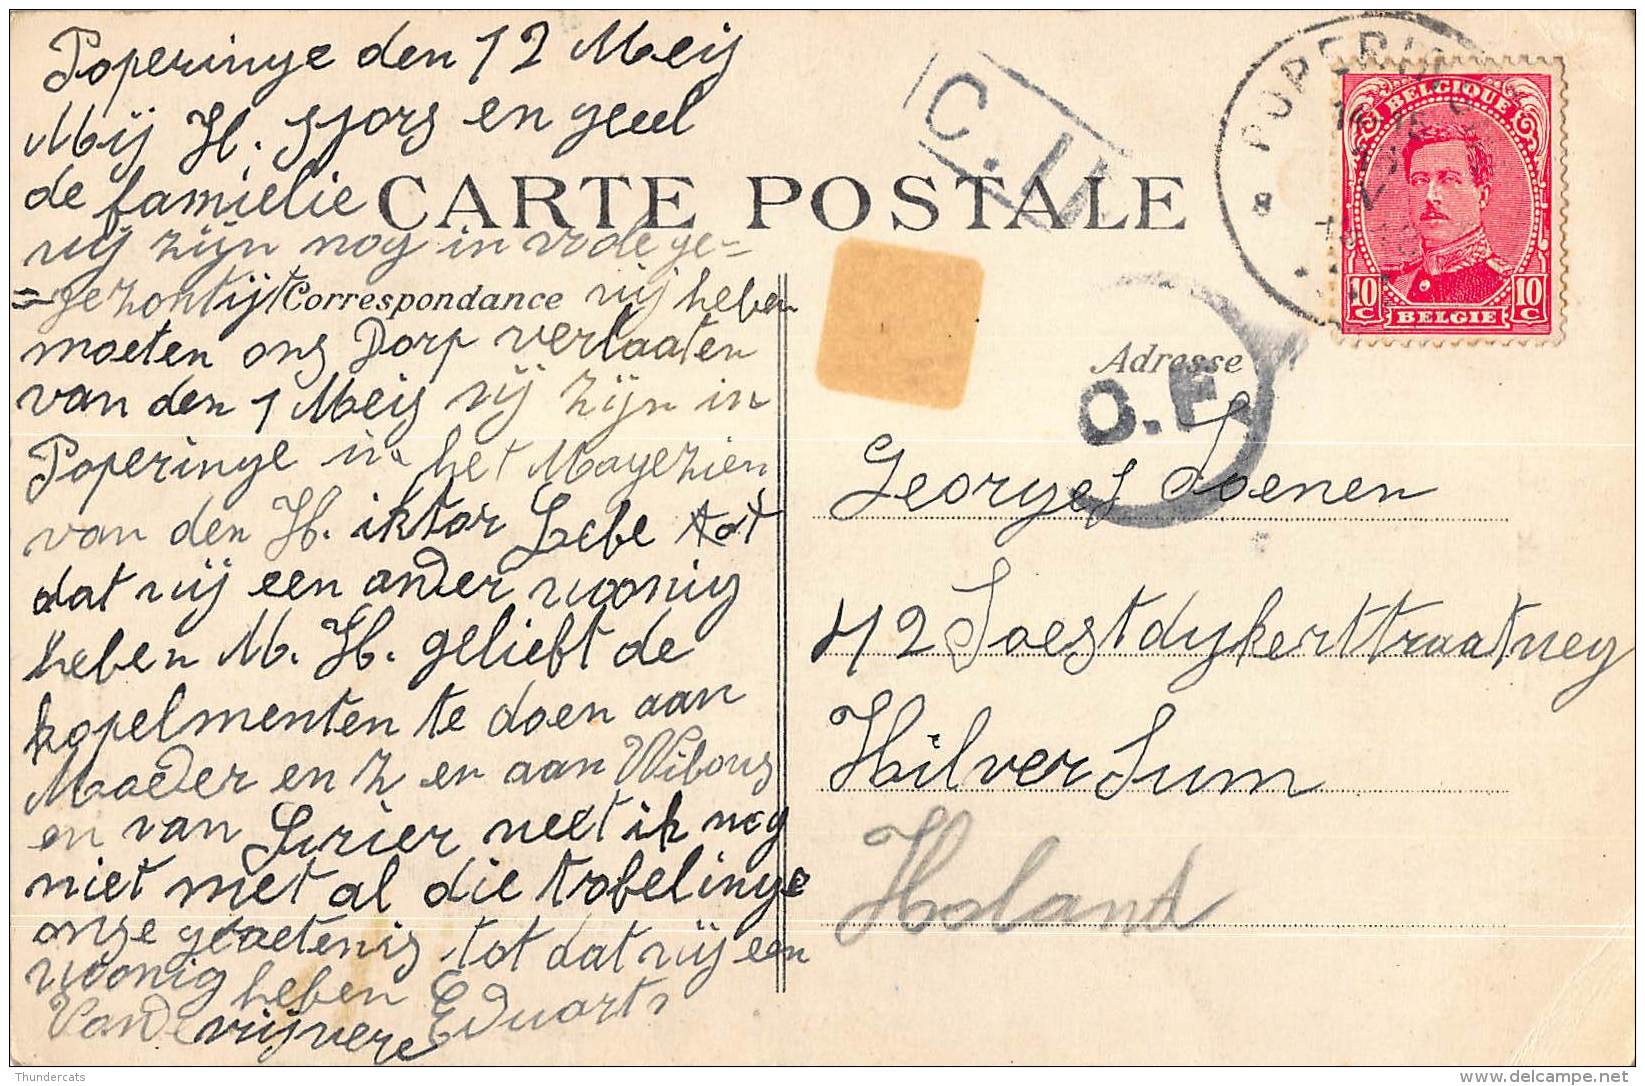 Poperinge den 12 Meij
Mij H. Sjors en geul
de familie
CARTE POSTALE
wij zijn nog in vrde ge=
=gezontijt
Correspondance
wij heben
moeten ons Dorp verlaaten
van den 1 Meij wij zijn in
Poperinge in het Magezien
van den H. iktor Lebe tot
dat wij een ander woonig
heben M. H. gelieft de
kopelmenten te doen aan
Moeder en Z en aan Wibous
en van Surier neet ik nog
niet met al die trobelinge
onze
tot dat wij een
woonig heben Eduart
Vande vrijvere
C.
POPERINGE
BELGIQUE
10 C
10 C
BELGIE
Adresse
O.F.
Georges Soenen
42 Soestdykerttraatweg
HilverSum
Holand
Thundercats
delcampe.net